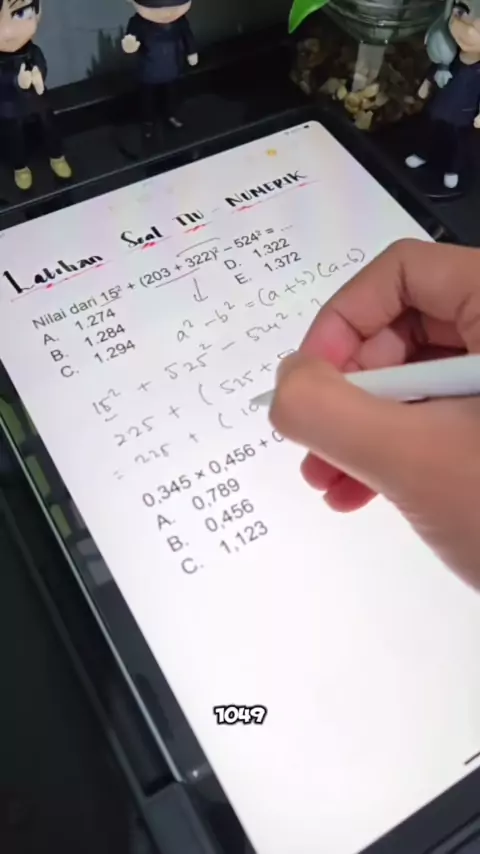 Latihan Soal TIU - NUMERIK
Nilai dari 15² + (203 + 322)² – 524² = ...
A. 1.274
B. 1.284
C. 1.294
D. 1.322
E. 1.372
a² - b² = (a+b)(a-b)
15² + 525² - 524²
225 + (525 +
= 225 + (10
0,345 × 0,456 +
A. 0,789
B. 0,456
C. 1,123
1049